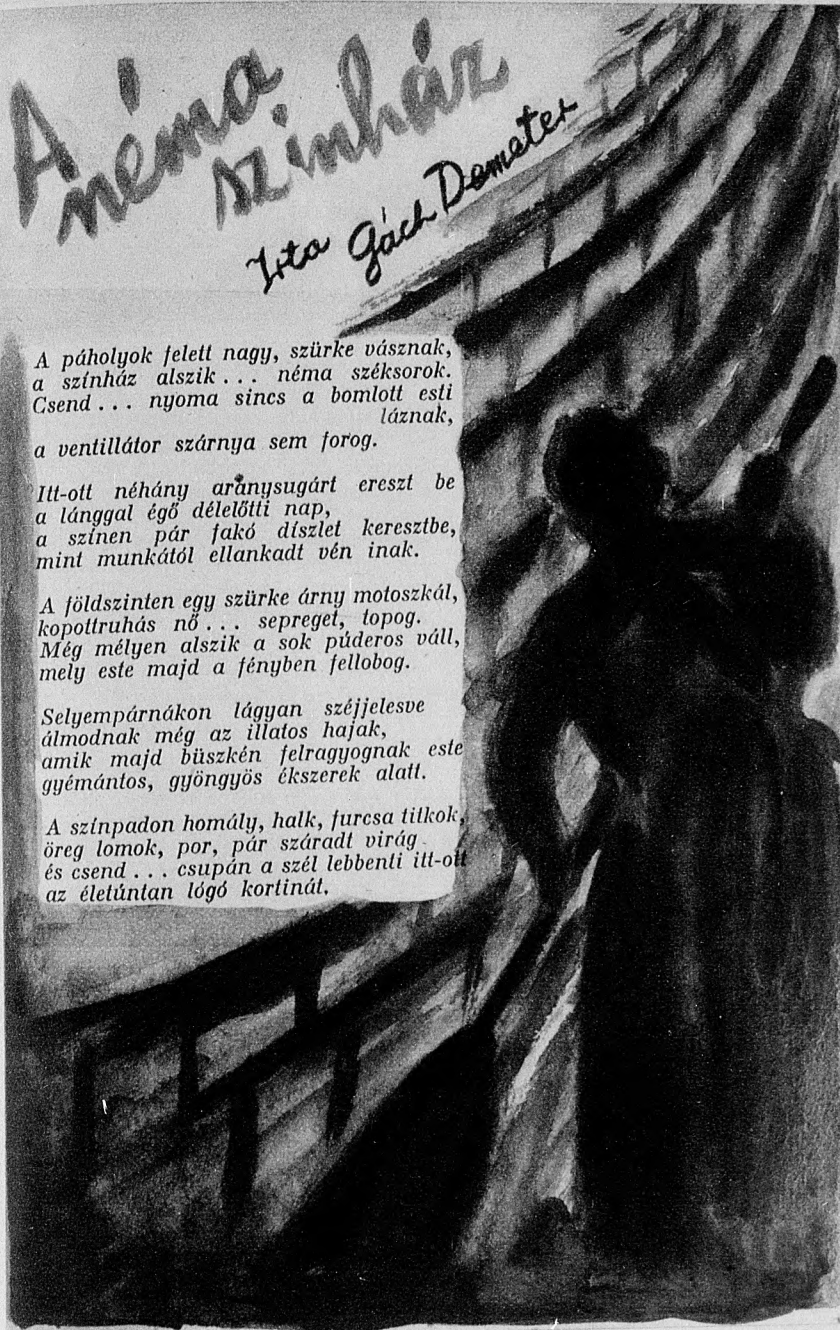 A
néma
színház
Irta Gách Demeter
A páholyok felett nagy, szürke vásznak,
a színház alszik . . . néma széksorok.
Csend . . . nyoma sincs a bomlott esti
láznak,
a ventillátor szárnya sem forog.
Itt-ott néhány aranysugárt ereszt be
a lánggal égő délelőtti nap,
a színen pár fakó díszlet keresztbe,
mint munkától ellankadt vén inak.
A földszinten egy szürke árny motoszkál,
kopottruhás nő . . . sepreget, topog.
Még mélyen alszik a sok púderos váll,
mely este majd a fényben fellobog.
Selyempárnákon lágyan széjjelesve
álmodnak még az illatos hajak,
amik majd büszkén felragyognak este
gyémántos, gyöngyös ékszerek alatt.
A színpadon homály, halk, furcsa titkok,
öreg lomok, por, pár száradt virág
és csend . . . csupán a szél lebbenti itt-ott
az életúntan lógó kortinát.